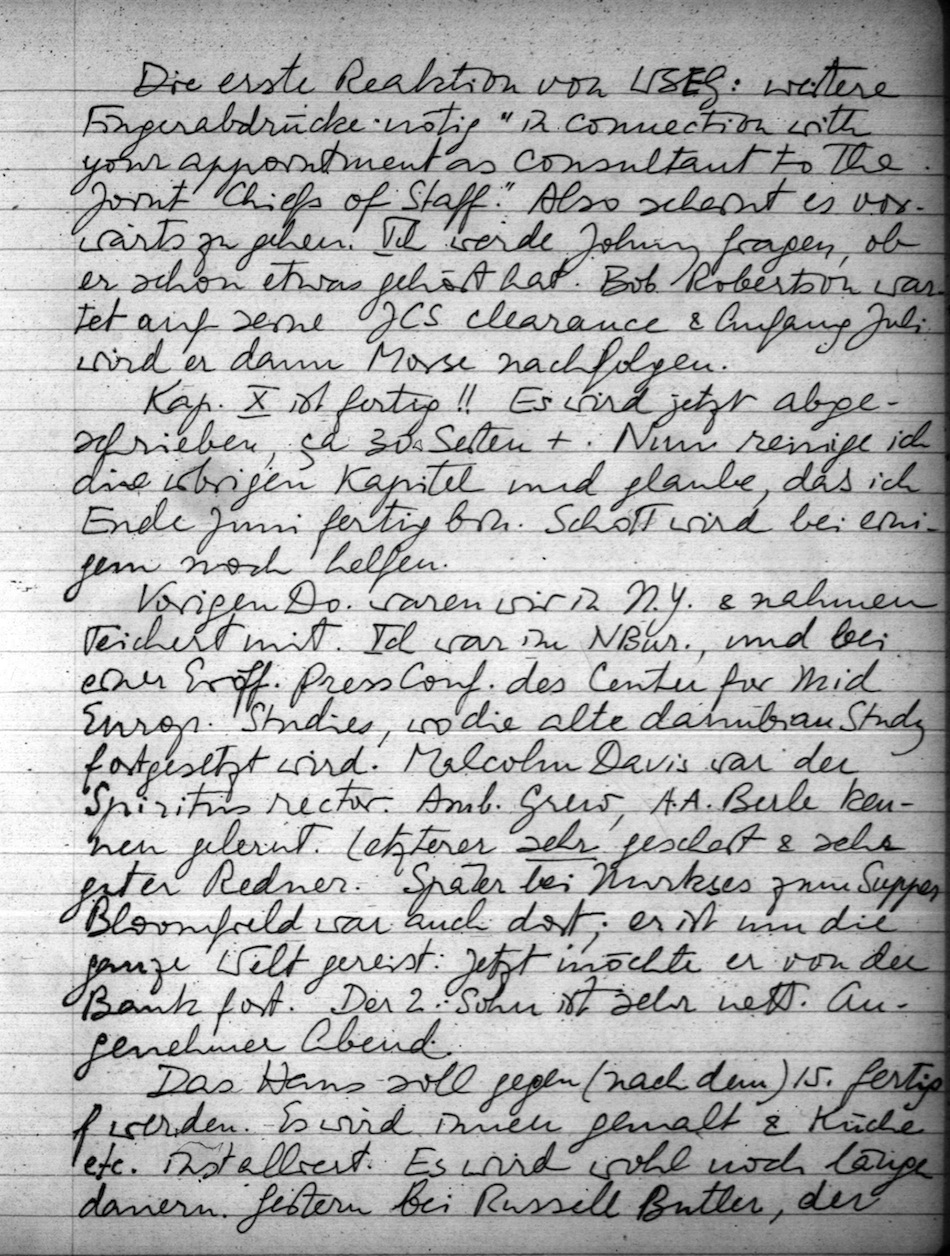 Die erste Reaktion von WSEG: weitere
Fingerabdrücke nötig "in connection with
your appointment as consultant to the
Joint Chiefs of Staff." Also scheint es vor-
wärts zu gehen. Ich werde Johnny fragen, ob
er schon etwas gehört hat. Bob Robertson war-
tet auf seine JCS clearance & Anfang Juli
wird er dann Morse nachfolgen.
Kap. X ist fertig!! Es wird jetzt abge-
schrieben, ca 30 Seiten +. Nun reinige ich
die übrigen Kapitel und glaube, das ich
Ende Juni fertig bin. Schott wird bei eini-
gem noch helfen.
Vorigen Do. waren wir in N.Y. & nahmen
Teichert mit. Ich war im NBur., und bei
einer Eröff. Press Conf. des Center for Mid
Europ. Studies, wo die alte danubian Study
fortgesetzt wird. Malcolm Davis war der
Spiritus rector. Amb. Grew, A.A. Berle ken-
nen gelernt. Letzterer sehr gescheit & sehr
guter Redner. Später bei Nurkses zum Supper
Bloomfield war auch dort; er ist um die
ganze Welt gereist. Jetzt möchte er von der
Bank fort. Der 2. Sohn ist sehr nett. An-
genehmer Abend.
Das Haus soll gegen (nach dem) 15. fertig
werden. Es wird innen gemalt & Küche
etc. installiert. Es wird wohl noch länger
dauern. Gestern bei Russell Butler, der